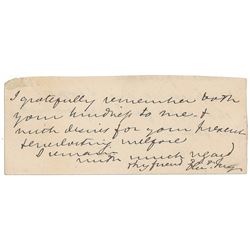 I gratefully remember both
your kindness to me &
much desire for your present
& everlasting welfare
I remain
with much
thy friend